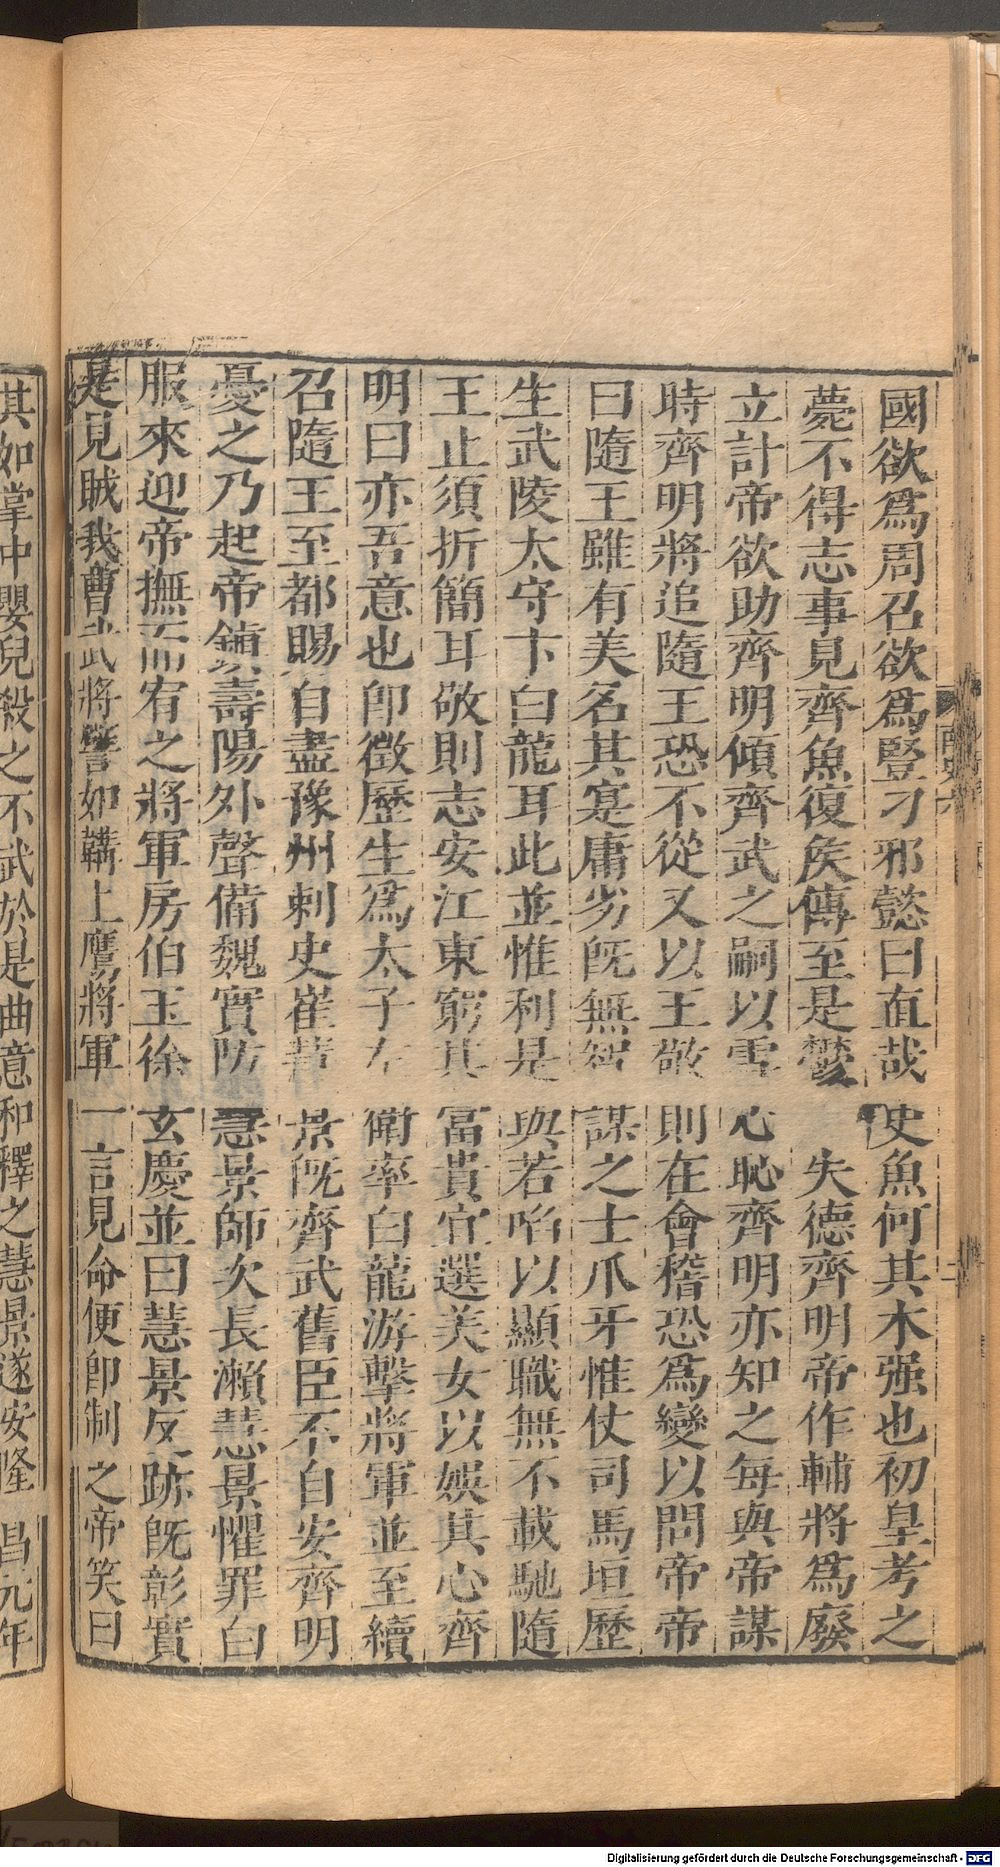 國欲爲周召欲爲豎刁邪懿曰直哉史魚何其木强也初皇考之
薨不得志事見齊魚復矦傳至是鬱失德齊明帝作輔將爲廢
立計帝欲助齊明傾齊武之嗣以雪心恥齊明亦知之每與帝謀
時齊明將追隨王恐不從又以王敬則在會稽恐爲變以問帝帝
曰隨王雖有美名其寔庸劣旣無智謀之士爪牙惟仗司馬垣歷
生武陵太守卞白龍耳此並惟利是與若啗以顯職無不載馳隨
王止須折簡耳敬則志安江東窮其富貴宜選美女以娛其心齊
明曰亦吾意也卽徵歷生爲太子左衛率白龍游擊將軍並至續
召隨王至都賜自盡豫州刺史崔慧景旣齊武舊臣不自安齊明
憂之乃起帝鎮壽陽外聲備魏實防慧景師次長瀨慧景懼罪白
服來迎帝撫而宥之將軍房伯玉徐玄慶並曰慧景反跡旣彰實
是見賊我曹武將譬如韝上鷹將軍一言見命便卽制之帝笑曰
其如掌中嬰兒殺之不武於是曲意和釋之慧景遂安隆昌元年
Digitalisierung gefördert durch die Deutsche Forschungsgemeinschaft - DFG